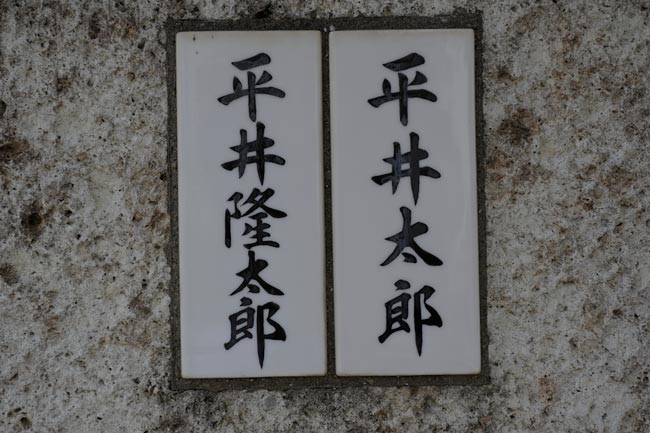 平井太郎
平井隆太郎